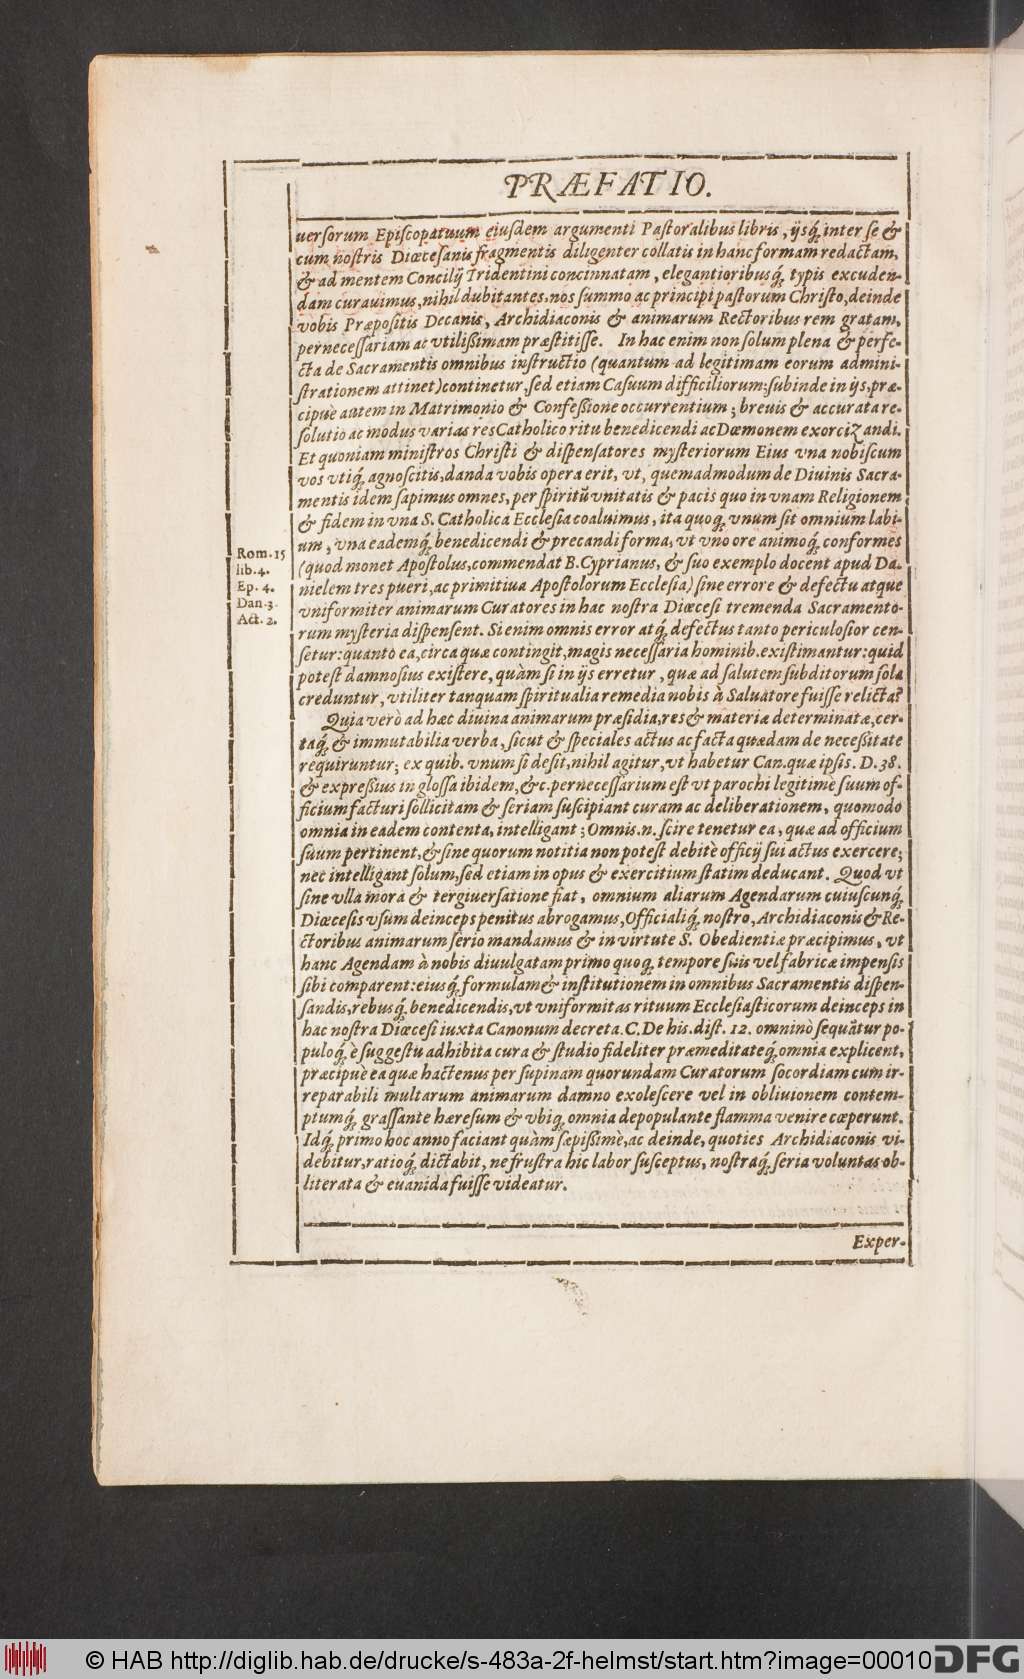 PRÆFATIO.
uersorum Episcopatuum eiusdem argumenti Pastoralibus libris, ijsq́; inter se &
cum nostris Diœcesanis fragmentis diligenter collatis in hanc formam redactam,
& ad mentem Concilij Tridentini concinnatam, elegantioribusq́; typis excuden-
dam curauimus, nihil dubitantes, nos summo ac principi pastorum Christo, deinde
vobis Præpositis Decanis, Archidiaconis & animarum Rectoribus rem gratam,
pernecessariam ac vtilißimam præstitisse. In hac enim non solum plena & perfe-
cta de Sacramentis omnibus instructio (quantum ad legitimam eorum admini-
strationem attinet) continetur, sed etiam Casuum difficiliorum; subinde in ijs, præ-
cipuè autem in Matrimonio & Confeßione occurrentium; breuis & accurata re-
solutio ac modus varias res Catholico ritu benedicendi ac Dæmonem exorcizandi.
Et quoniam ministros Christi & dispensatores mysteriorum Eius vna nobiscum
vos vtiq́; agnoscitis, danda vobis opera erit, vt, quemadmodum de Diuinis Sacra-
mentis idem sapimus omnes, per spiritũ vnitatis & pacis quo in vnam Religionem
& fidem in vna S. Catholica Ecclesia coaluimus, ita quoq́; vnum sit omnium labi-
um, vna eademq́; benedicendi & precandi forma, vt vno ore animoq́; conformes
(quod monet Apostolus, commendat B. Cyprianus, & suo exemplo docent apud Da-
nielem tres pueri, ac primitiua Apostolorum Ecclesia) sine errore & defectu atque
vniformiter animarum Curatores in hac nostra Diœcesi tremenda Sacramento-
rum mysteria dispensent. Si enim omnis error atq́; defectus tanto periculosior cen-
setur: quanto ea, circa quæ contingit, magis necessaria hominib. existimantur: quid
potest damnosius existere, quàm si in ijs erretur, quæ ad salutem subditorum sola
creduntur, vtiliter tanquam spiritualia remedia nobis à Saluatore fuisse relicta?
Rom. 15
lib. 4.
Ep. 4.
Dan. 3.
Act. 2.
Quia verò ad hæc diuina animarum præsidia, res & materia determinatæ, cer-
taq́; & immutabilia verba, sicut & speciales actus ac facta quædam de neceßitate
requiruntur; ex quib. vnum si desit, nihil agitur, vt habetur Can. quæ ipsis. D. 38.
& expreßius in glossa ibidem, &c. pernecessarium est vt parochi legitimè suum of-
ficium facturi sollicitam & seriam suscipiant curam ac deliberationem, quomodo
omnia in eadem contenta, intelligant; Omnis. n. scire tenetur ea, quæ ad officium
suum pertinent, & sine quorum notitia non potest debitè officij sui actus exercere;
nec intelligant solum, sed etiam in opus & exercitium statim deducant. Quod vt
sine vlla mora & tergiuersatione fiat, omnium aliarum Agendarum cuiuscunq́;
Diœcesis vsum deinceps penitus abrogamus, Officialiq́; nostro, Archidiaconis & Re-
ctoribus animarum seriò mandamus & in virtute S. Obedientiæ præcipimus, vt
hanc Agendam à nobis diuulgatam primo quoq́; tempore suis vel fabricæ impensis
sibi comparent: eiusq́; formulam & institutionem in omnibus Sacramentis dispen-
sandis, rebusq́; benedicendis, vt vniformitas rituum Ecclesiasticorum deinceps in
hac nostra Diœcesi iuxta Canonum decreta. C. De his. dist. 12. omninò sequãtur po-
puloq́; è suggestu adhibita cura & studio fideliter præmeditateq́; omnia explicent,
præcipuè ea quæ hactenus per supinam quorundam Curatorum socordiam cum ir-
reparabili multarum animarum damno exolescere vel in obliuionem contem-
ptumq́; grassante hæresum & vbiq́; omnia depopulante flamma venire cœperunt.
Idq́; primo hoc anno faciant quàm sæpißimè, ac deinde, quoties Archidiaconis vi-
debitur, ratioq́; dictabit, ne frustra hic labor susceptus, nostraq́; seria voluntas ob-
literata & euanida fuisse videatur.
Exper-
© HAB http://diglib.hab.de/drucke/s-483a-2f-helmst/start.htm?image=00010
DFG